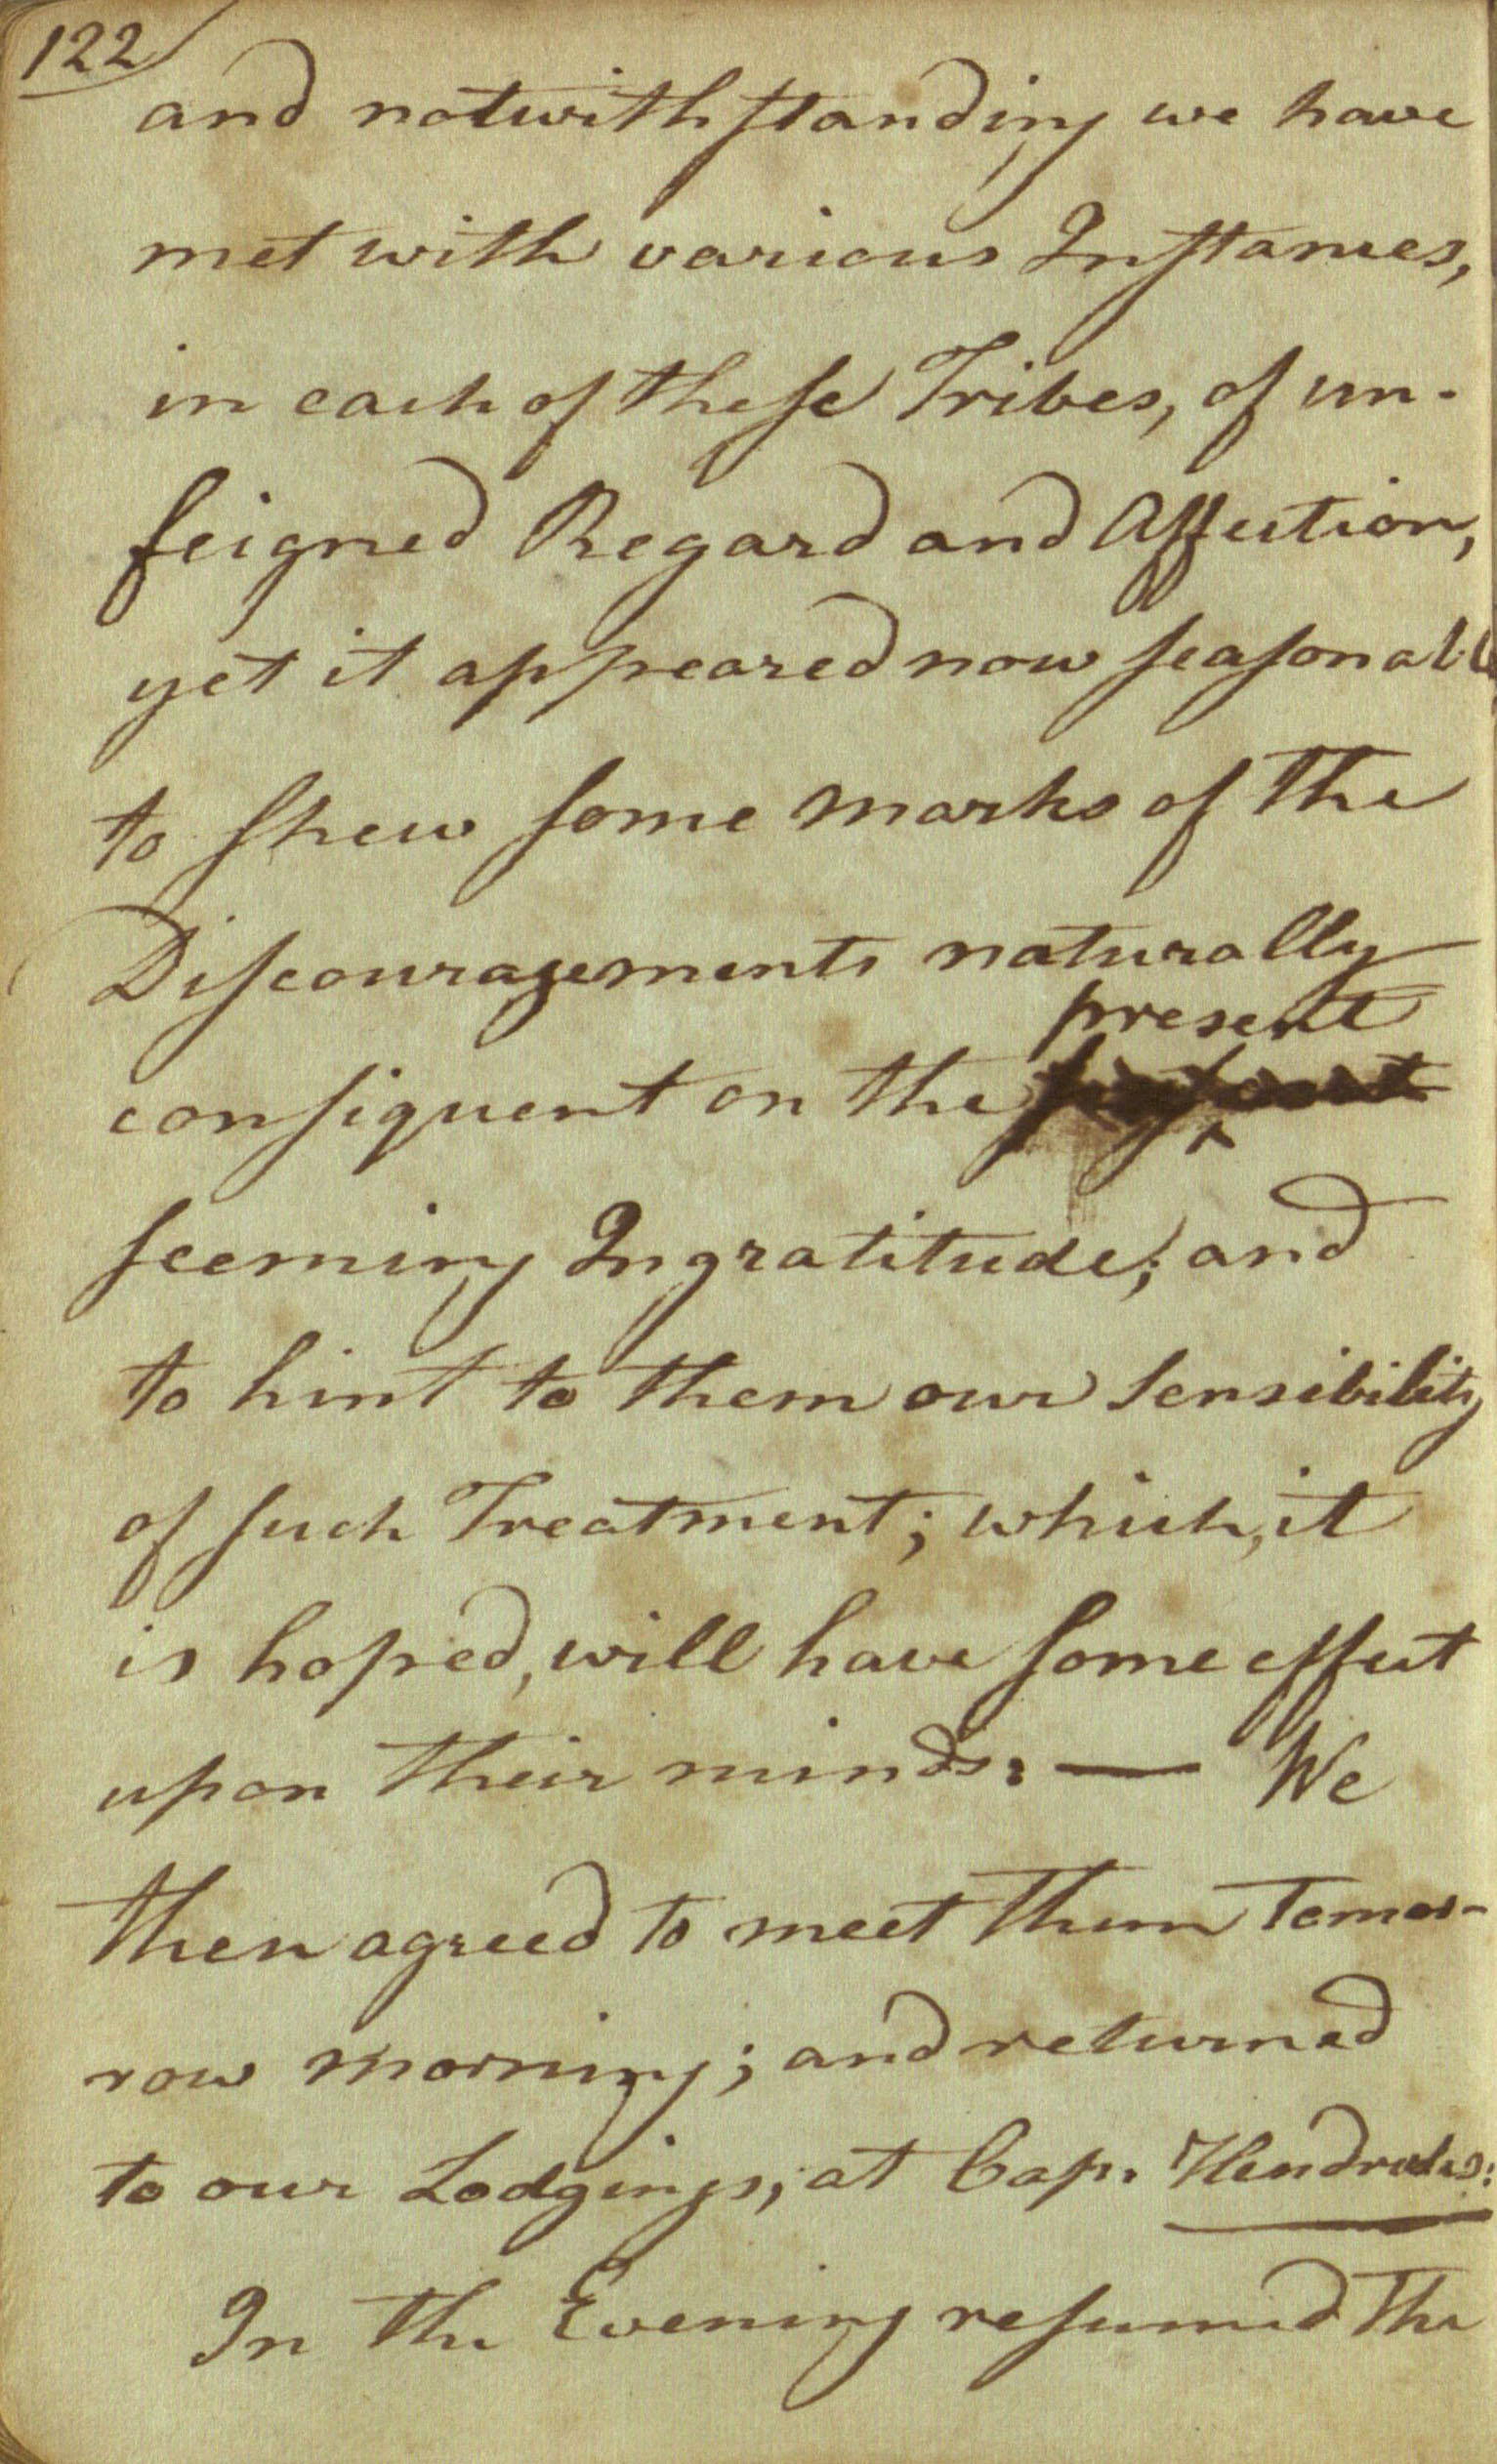 122
and notwithstanding we have
met with various Instances,
in each of these Tribes, of un-
feigned Regard and Affection,
yet it appeared now seasonable
to shew some marks of the
Discouragements naturally
present
consequent on the
seeming Ingratitude; and
to hint to them our Sensibility
of such Treatment; which, it
is hoped, will have some effect
upon their minds: — We
then agreed to meet them Tomor-
row morning; and returned
to our Lodgings, at Cap. Hendricks:
In the Evening resumed the